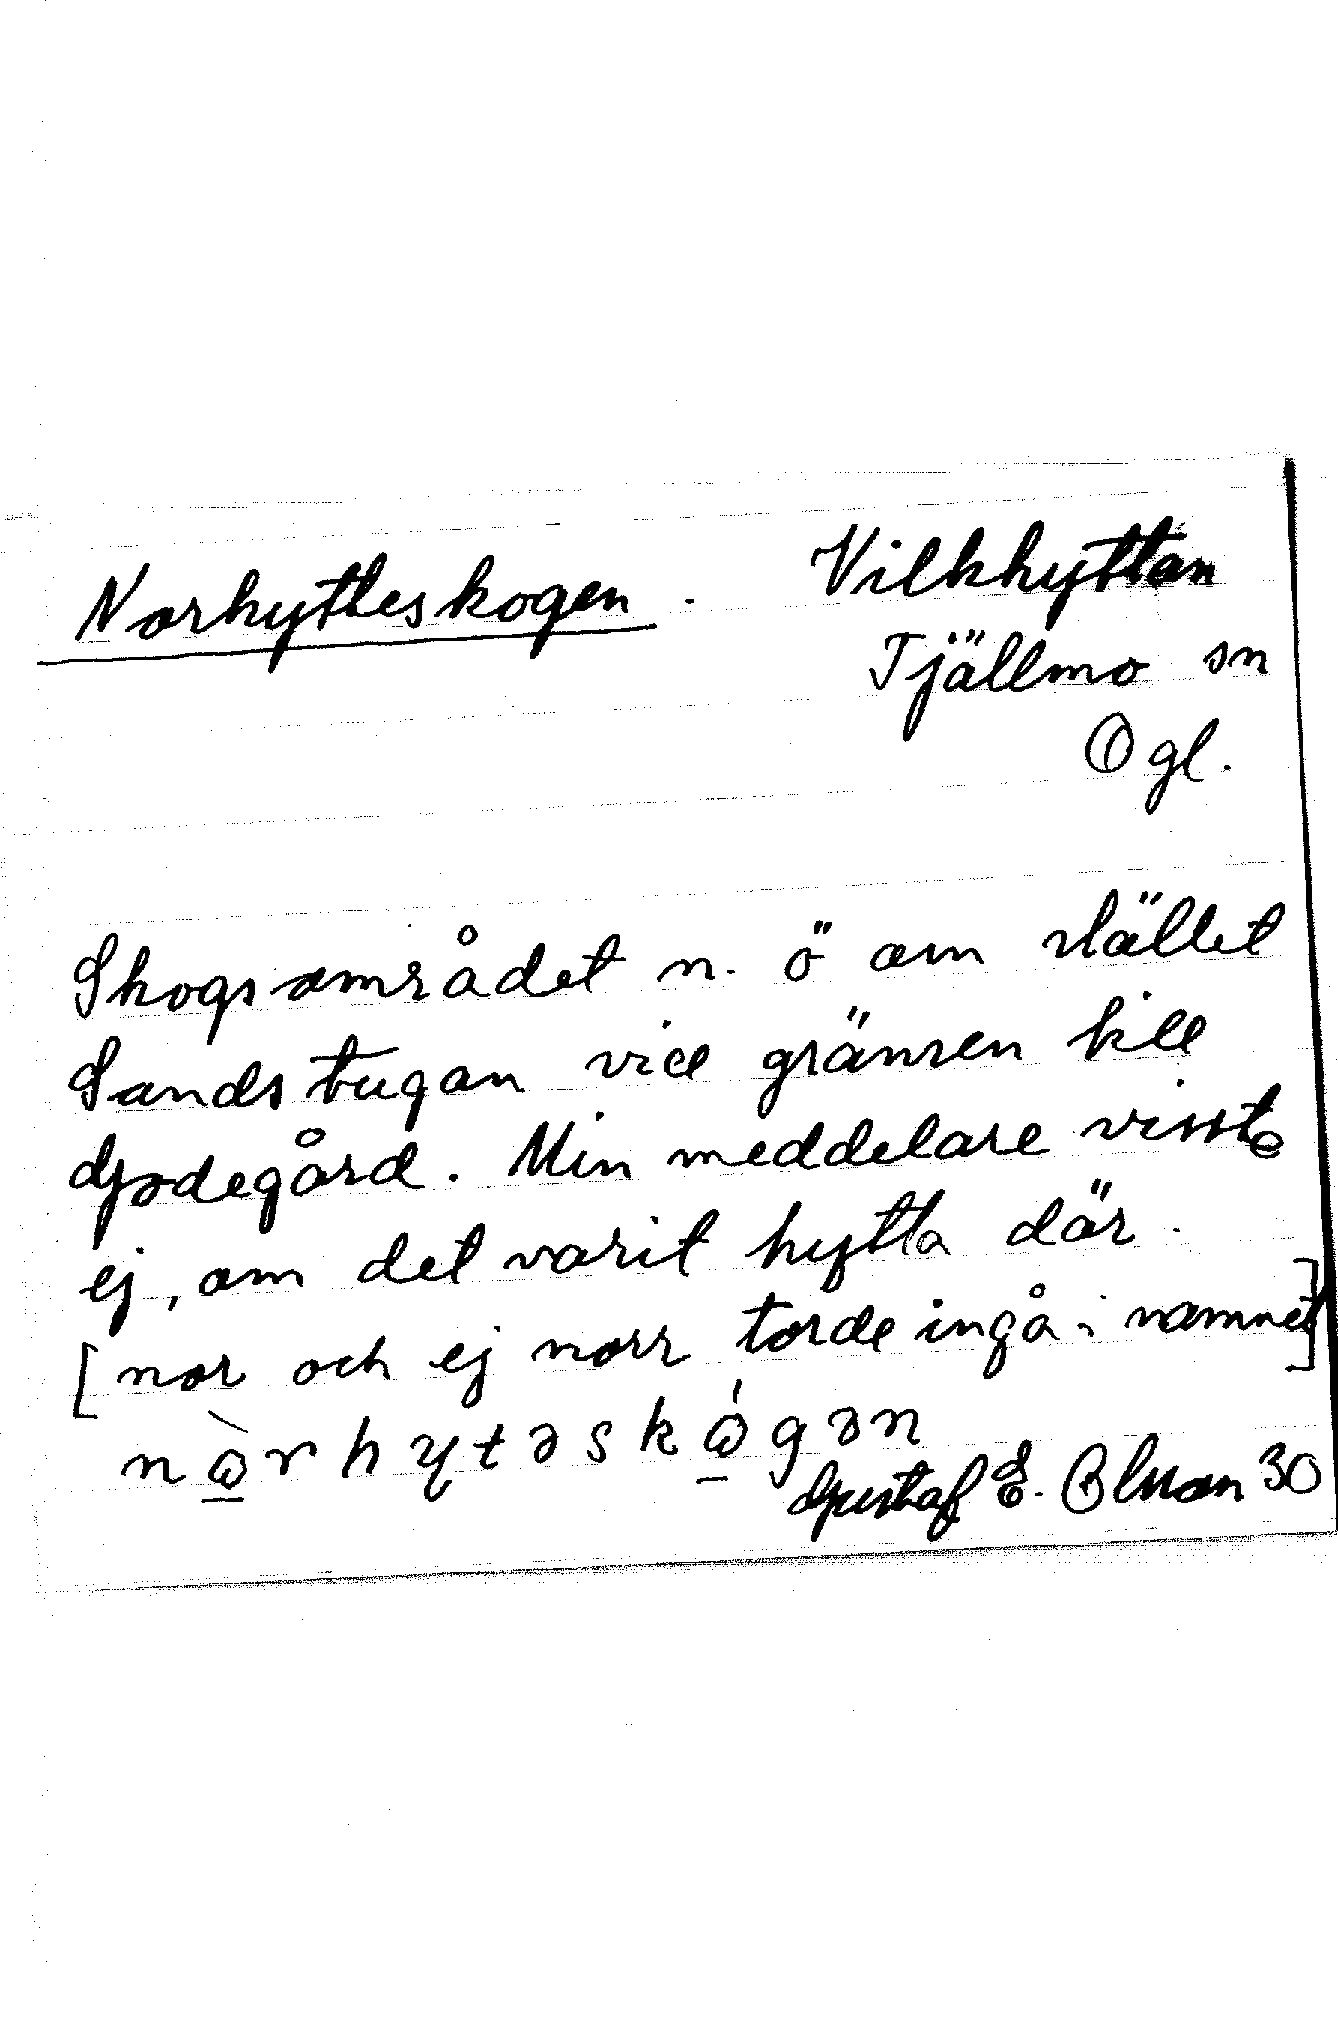 Norhytteskogen. Vilkhyttan
Tjällmo sn
Ögl.
Skogsområdet n. ö om stället
Sandstugan vid gränsen till
Godegård. Min meddelare visste
ej, om det varit hytta där.
[nor och ej norr torde ingå i namnet]
Gustaf E. Olsson 30